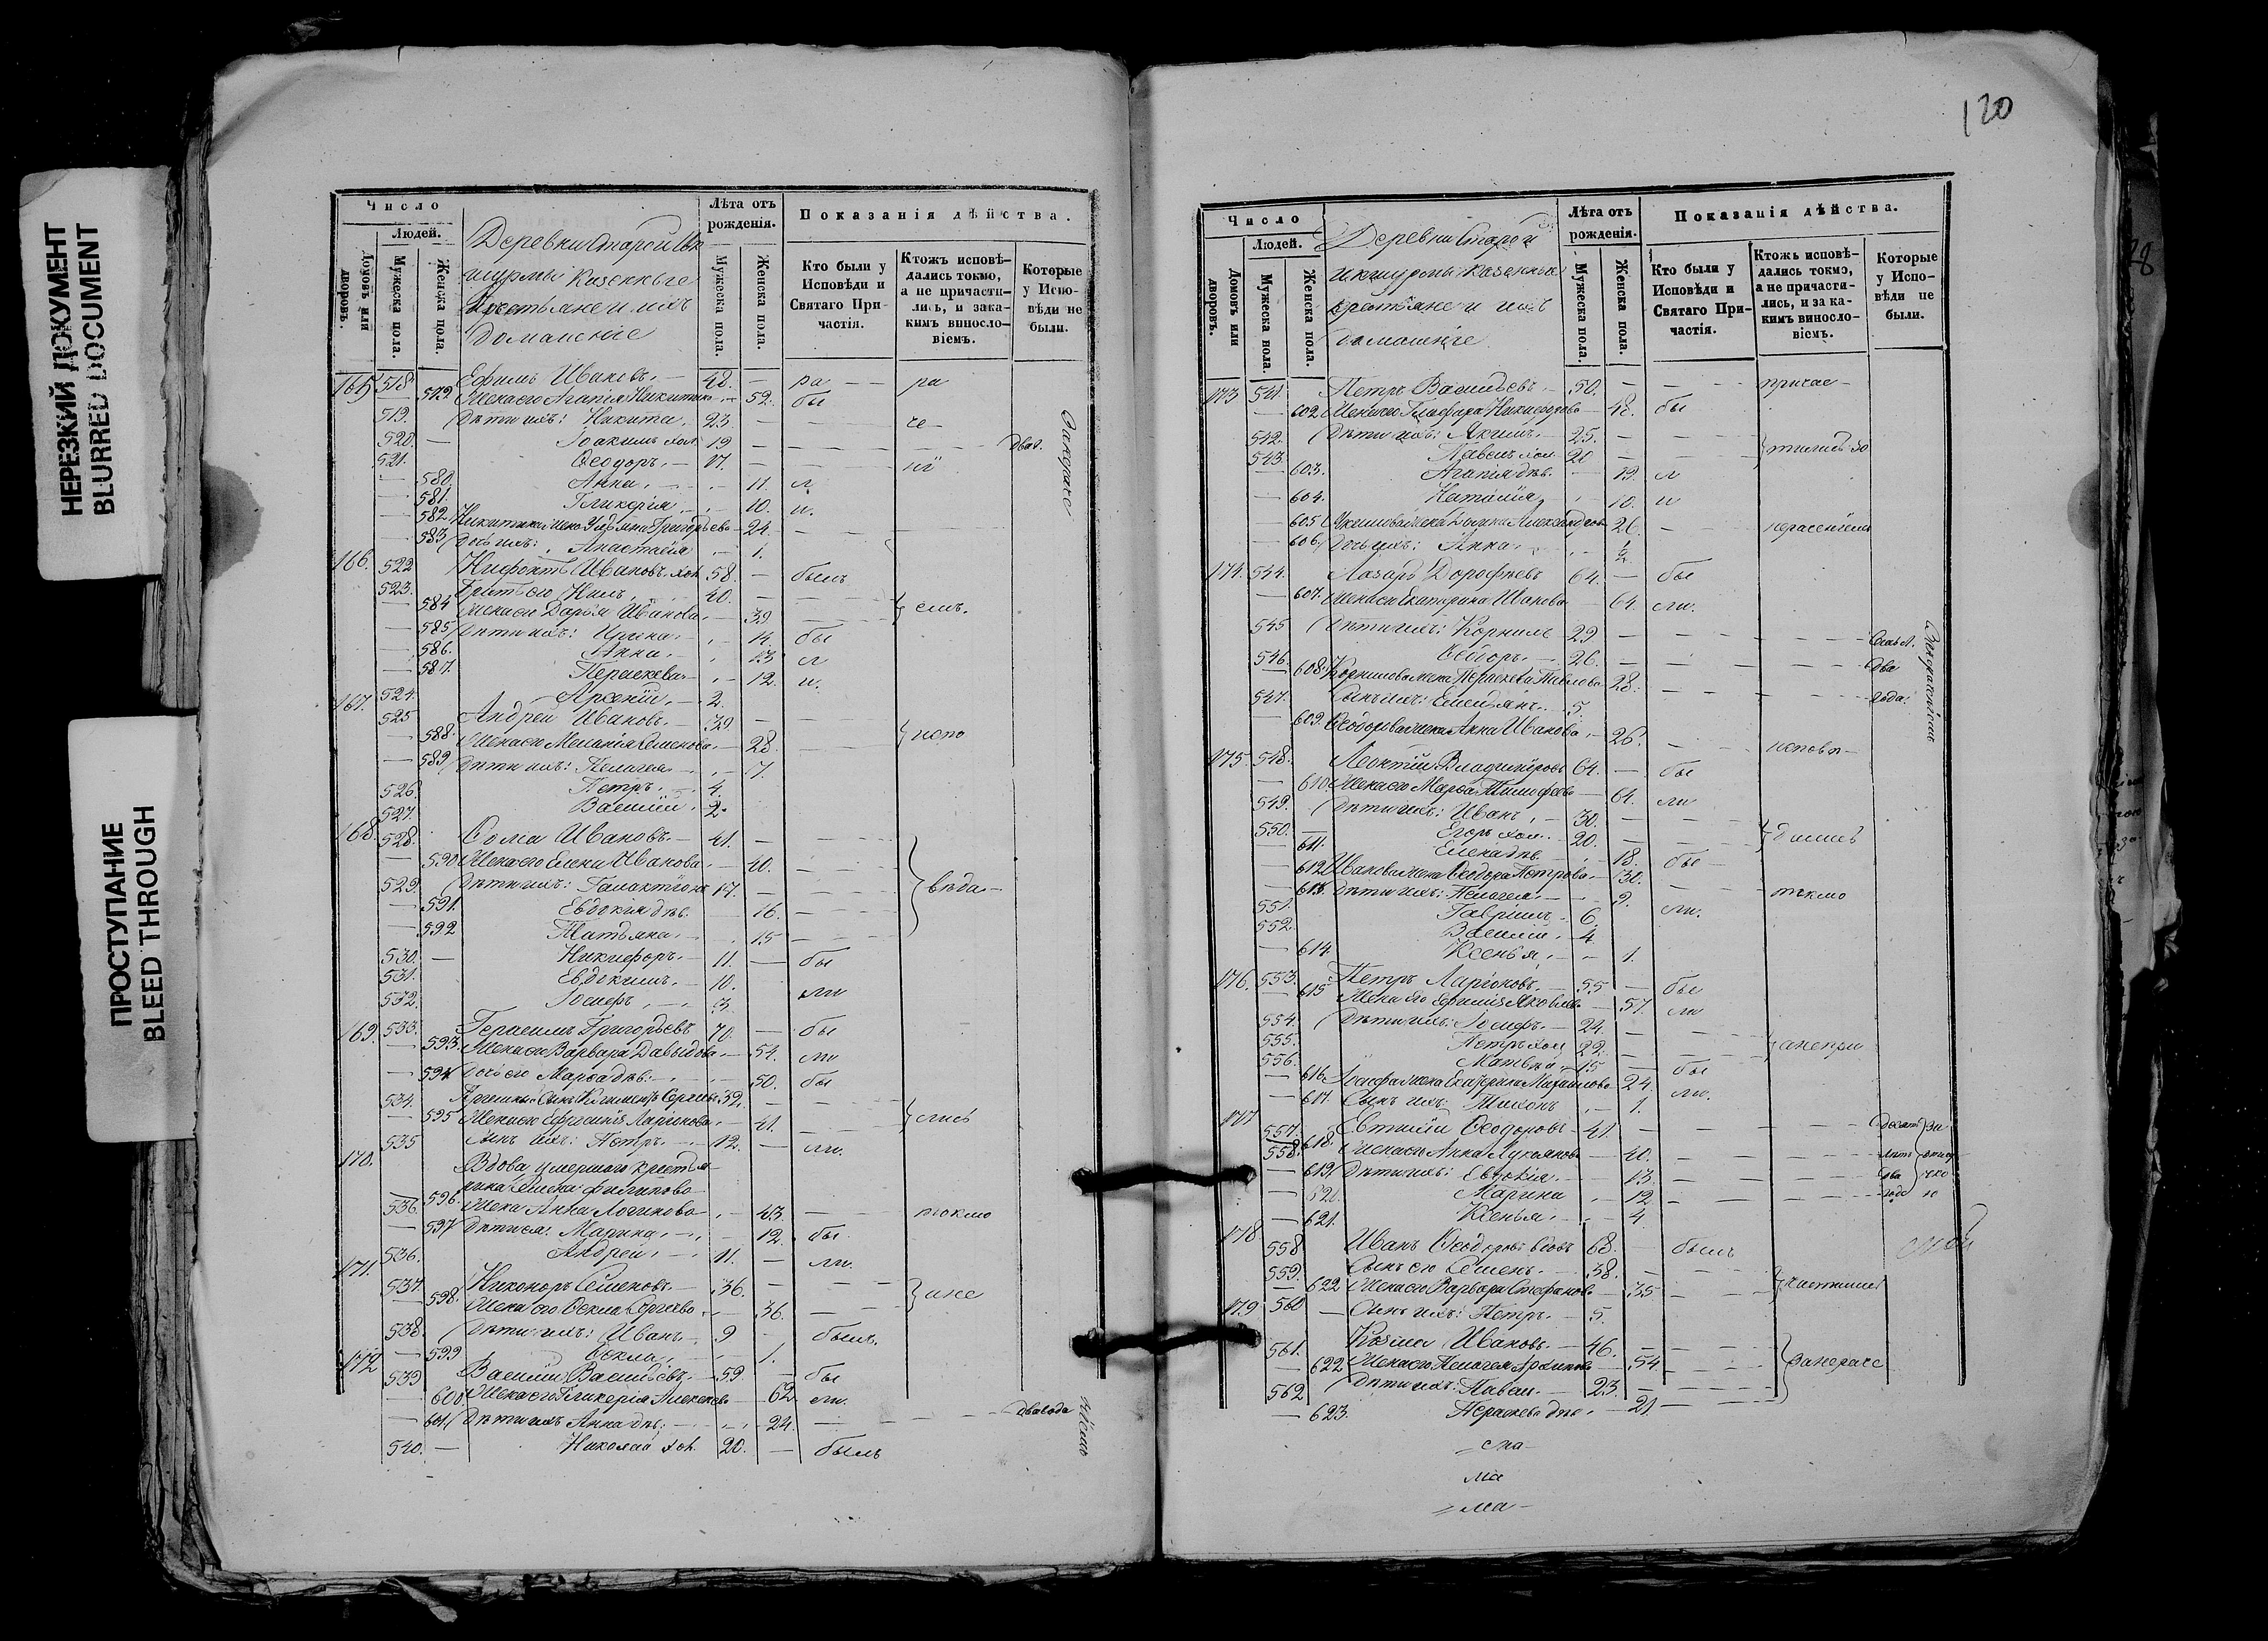 НЕРЕЗКИЙ ДОКУМЕНТ
BLURRED DOCUMENT
ПРОСТУПАНИЕ
BLEED THROUGH
Число
Людей.
Домовъ или дворовъ.
Мужеска пола.
Женска пола.
Деревни Старой Ик
шурмы казенные
крестьяне и ихъ
домашніе
Лѣта отъ рожденія.
Мужеска пола.
Женска пола.
Показанія дѣйства.
Кто были у Исповѣди и Святаго Причастія.
Ктожъ исповѣдались токмо, а не причастились, и закакимъ винословіемъ.
Которые у Исповѣди не были.
165 518 Ефимъ Ивановъ 48. — ра — — ра
579. Жена его Агапія Никитина — 52. бы
519. Дѣти ихъ: Никита 23 — — — че —
520. — Іоакимъ хол. 19 — — — —
521. Ѳеодоръ 17. — — —
580. Анна 11. л
581. Гликерія 10. и.
582 Никитина жена Григорьева 24. — —
583 Дочь ихъ: Анастасія 1.
166. 522 Нифонтъ Ивановъ хол. 58. — былъ
523. Братъ его Нилъ 40. — — —
584 Жена его Дарья Иванова 39 — —
585 Дѣти ихъ: Ирина 14. бы
586. Анна 13 л
587. Параскева 12. и.
524. Арсеній 2.
167. 525 Андрей Ивановъ 39 — — —
588. Жена его Меланія Семенова 28. — — испо
589 Дѣти ихъ: Пелагея 7.
526. Петръ 4.
527. Василій 2.
168. 528. Ѳома Ивановъ 41. — — —
590 Жена его Елена Иванова 40. — —
529. Дѣти ихъ: Галактіонъ 17. — — — вѣда —
591. Евдокія дѣв. 16. — —
592 Татьяна 15 — —
530. — Никифоръ 11 — бы
531. Евдокимъ 10.
532. Іосифъ 3. ли
169. 533. Герасимъ Григорьевъ 70. — бы
593. Жена его Варвара Давыдова 54. ли
594 Дочь его Марѳа дѣв. 50. бы
534. Сергѣевъ 39. — —
595 Жена его Ефросинія Ларіонова 41. — — лись
535 Сынъ ихъ: Петръ 12. — ли.
170. Вдова умершаго крестья
нина Филипова
536. 596. Жена Анна Логинова 43. — — токмо
597 Дѣти ея: Марина 12. бы
536. Андрей 11. — ли.
171. 537. Никоноръ Семеновъ 36. — —
598. Жена его Ѳекла Сергѣева 36. — — а не
538. Дѣти ихъ: Иванъ 9 — былъ.
599 Ѳекла 1.
172 539 Василій Васильевъ 59. — бы
600 Жена его Гликерія Алексѣева 62. ли.
601. Дѣти ихъ Анна дѣв. 24. — — — два года
540. — Николай хол. 20. — былъ
120
Число
Людей.
Домовъ или дворовъ.
Мужеска пола.
Женска пола.
Деревни Старой
Икшурмы казенные
крестьяне и ихъ
домашніе
Лѣта отъ рожденія.
Мужеска пола.
Женска пола.
Показанія дѣйства.
Кто были у Исповѣди и Святаго Причастія.
Ктожъ исповѣдались токмо, а не причастились, и за какимъ винословіемъ.
Которые у Исповѣди не были.
173 541. Петръ Васильевъ 50. — — — причас —
602 Жена его Глафира Никифорова 48. бы
542. Дѣти ихъ: Акимъ 25. — — —
543. Павелъ хол. 20 — — — тились за
603. Агапія дѣв. 19. л
604. Наталія 10. и
605 Акимова жена Александрова 26. — —
606. Дочь ихъ: Анна
174. 544. Лазарь Дорофеевъ 64. — бы
607. Жена его Екатерина Иванова 64. ли.
545 Дѣти ихъ: Корнилъ 29 — — — —
546. Ѳеодоръ 26. — — — — два
608. Корнилова жена Параскева Павлова 28. — — — года.
547. Сынъ ихъ: Емельянъ 5.
609. Ѳеодорова жена Анна Иванова 26. — — исповѣ —
175. 548. Леонтій Владиміровъ 64. — бы
610. Жена его Марѳа Тимофеева 64. ли
549. Дѣти ихъ: Иванъ 30. — — —
550. Егоръ хол. 20. — — — дались
611. Елена дѣв. 18. бы
612 Иванова жена Ѳеодора Петрова 30. — —
613. Дѣти ихъ: Пелагея 9. ли. токмо
551. Гавріилъ 6.
552. Василій 4
614. Ксенья 1.
176. 553. Петръ Ларіоновъ 55 — бы
615 Жена его Ефимія Яковлева 57. ли
554. Дѣти ихъ: Іосифъ 24. — —
555. Петръ хол 22. — — — а не при
556. Матвѣй 15 — бы
616. Іосифа жена Екатерина Михайлова 24. ли.
617. Сынъ ихъ: Тихонъ 1.
177 557. Евтихій Ѳеодоровъ 41. — — — —
558. 618. Жена его Анна Лукьянова 40. — — — лѣтъ
619. Дѣти ихъ: Евдокія 13. — — — два
620. Марина 12 — — — года
621. Ксенья 4
178 558 Иванъ Ѳеодоровъ вдовъ 68. — былъ
559. Сынъ его Семенъ 38. — —
622 Жена его Варвара Стефанова 35 — — частились
179 560 — Сынъ ихъ: Петръ 5.
561. Козма Ивановъ 46. — —
622 Жена его Пелагея 54. — —
562 Дѣти ихъ: Павелъ 23. — —
623. Параскева дѣв. 21 — —